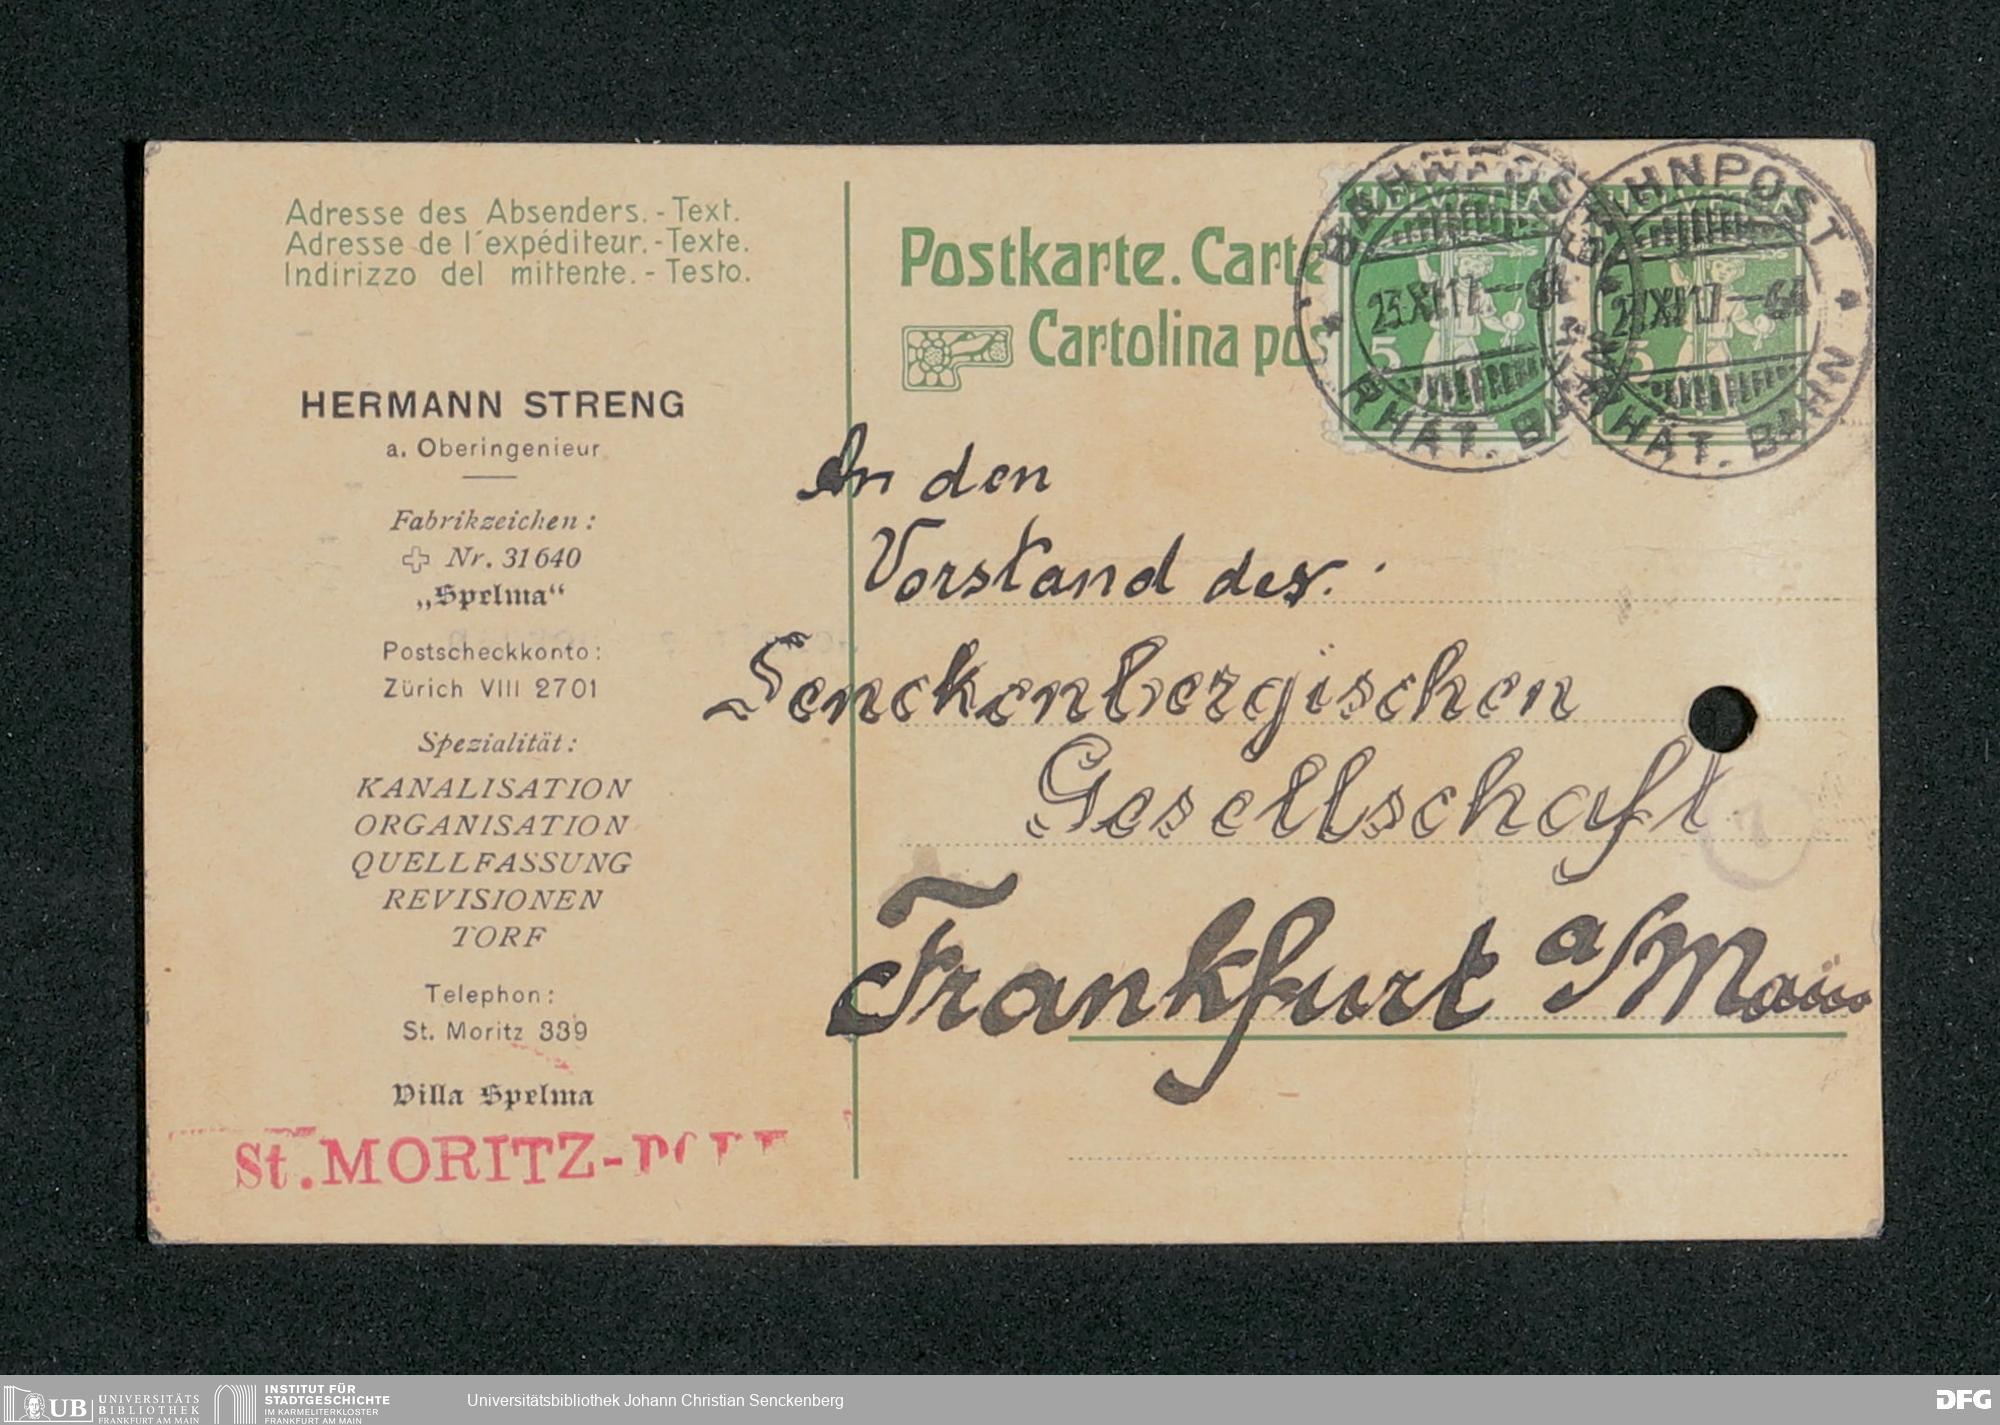 Adresse des Absenders. - Text.
Adresse de l'expéditeur. - Texte.
Indirizzo del mittente. - Testo.
HERMANN STRENG
a. Oberingenieur
Fabrikzeichen:
Nr. 31640
„Spelma“
Postscheckkonto:
Zürich VIII 2701
Spezialität:
KANALISATION
ORGANISATION
QUELLFASSUNG
REVISIONEN
TORF
Telephon:
St. Moritz 339
Villa Spelma
St. MORITZ-
Postkarte. Carte
Cartolina pos
HELVETIA
5
HELVETIA
5
BAHNPOST
XI 17
RHÄT. BAHN
BAHNPOST
XI 17
RHÄT. BAHN
An den
Vorstand der
Senckenbergischen
Gesellschaft
Frankfurt a/Main
7
UB UNIVERSITÄTS
BIBLIOTHEK
FRANKFURT AM MAIN
INSTITUT FÜR
STADTGESCHICHTE
IM KARMELITERKLOSTER
FRANKFURT AM MAIN
Universitätsbibliothek Johann Christian Senckenberg
DFG